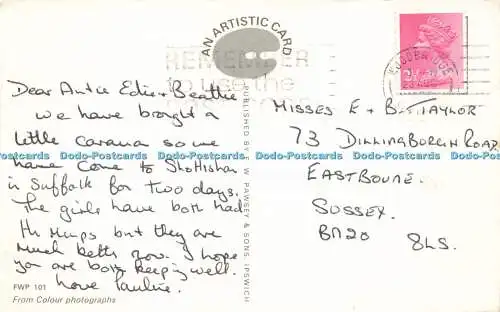 AN ARTISTIC CARD
REMEMBER
to use the
Dear Antie Edie & Beattie
we have bought a
little caravan so we
have come to Shottisham
in Suffolk for two days.
The girls have both had
the mumps but they are
much better now. I hope
you are both keeping well.
Love Pauline.
FWP 101
From Colour photographs
PUBLISHED BY F. W. PAWSEY & SONS, IPSWICH
MISSES E & B. TAYLOR
73 DILLINGBURGH ROAD
EASTBOURNE.
SUSSEX.
BN20 8LS.
WOODBRIDGE
Dodo-Postcards Dodo-Postcards Dodo-Postcards Dodo-Postcards Dodo-Postcards Dodo-Postcards Dodo-Postcards